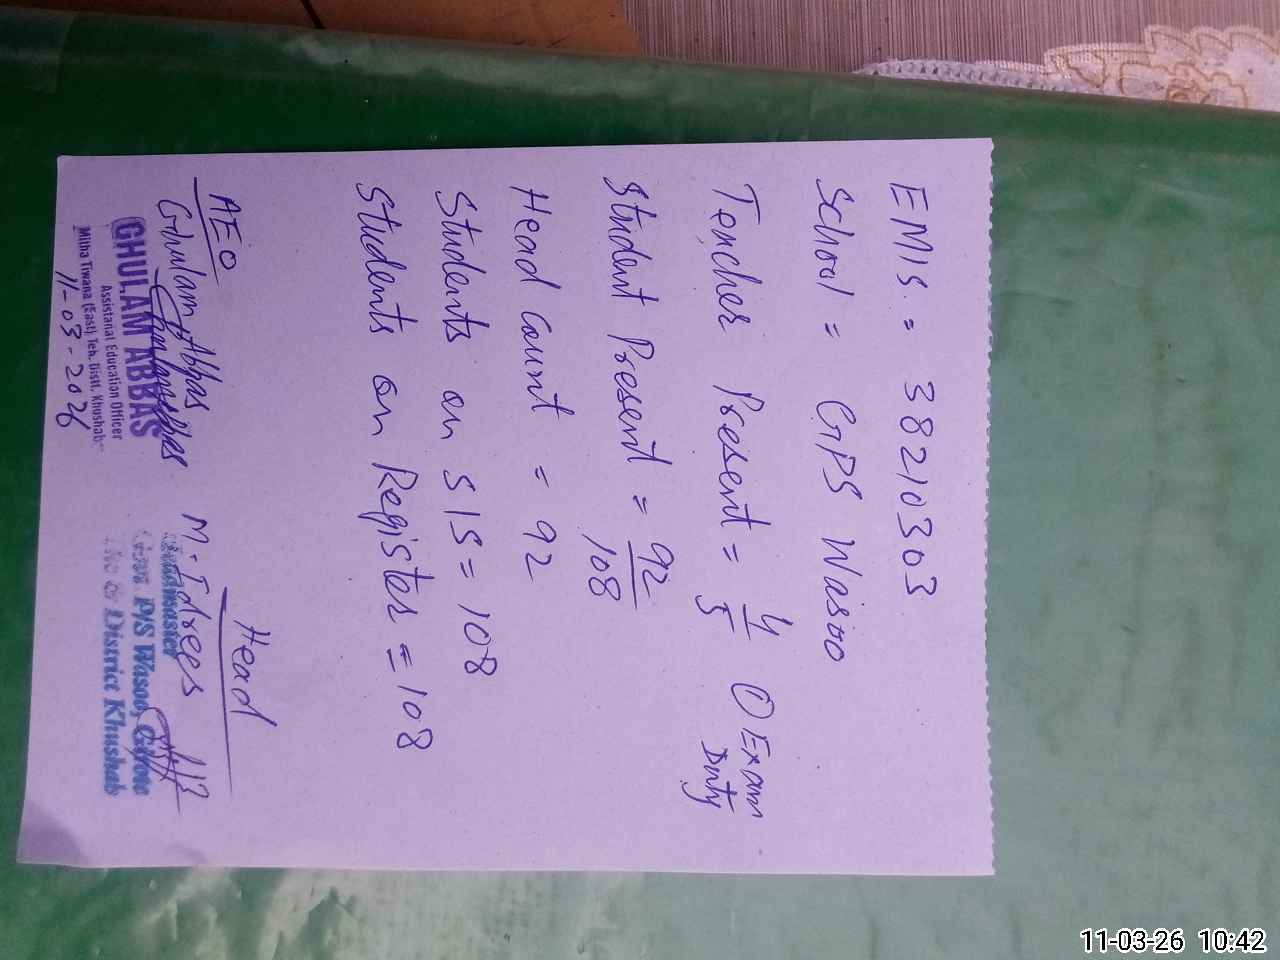 EMIS = 38210303
School = GPS Wasoo
Teacher Present = 4/5 ① Exam Duty
Student Present = 92/108
Head Count = 92
Students on SIS = 108
Students on Register = 108
Head
AEO
Ghulam Abbas
M. Idrees
GHULAM ABBAS
Assistanal Education Officer
Mitha Tiwana (East) Teh. Distt. Khushab
11-03-2026
Headmaster
Govt. P/S Wasoo,
District Khushab
11-03-26 10:42